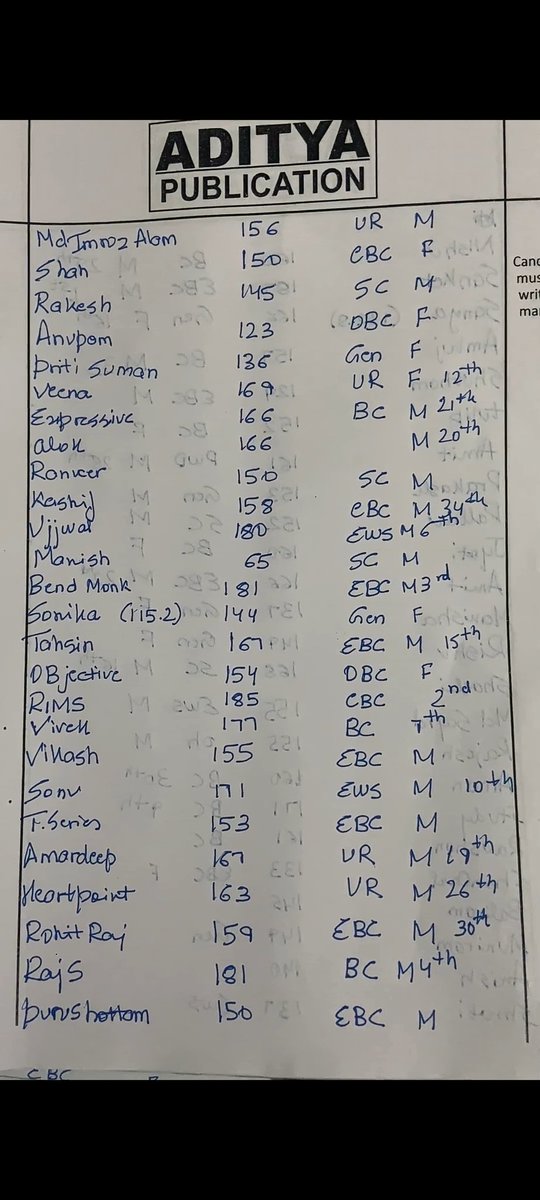 ADITYA
PUBLICATION
Md Imroz Alam 156 UR M
Shah 150 EBC F
Rakesh 145 SC M
Anupom 123 OBC F
Priti Suman 136 Gen F
Veena 169 UR F 12th
Expressive 166 BC M 21th
alok 166 M 20th
Ronveer 150 SC M
Kashif 158 EBC M 34th
Ujjwal 180 EWS M 6th
Manish 65 SC M
Bend Monk 181 EBC M 3rd
Sonika (115.2) 144 Gen F
Tahsin 167 EBC M 15th
OBjective 154 OBC F
RIMS 185 EBC 2nd
Vivek 177 BC 7th
Vikash 155 EBC M
Sonu 171 EWS M 10th
T.Series 153 EBC M
Amardeep 167 UR M 19th
Heartpoint 163 UR M 26th
Rohit Raj 159 EBC M 30th
Raj S 181 BC M 4th
purushottam 150 EBC M